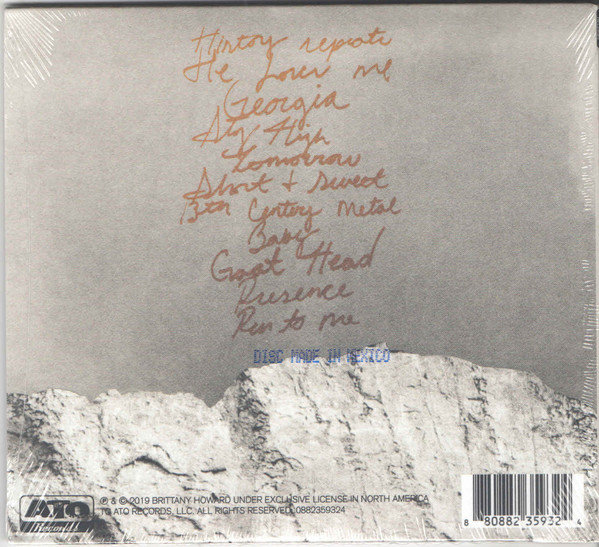 History repeats
He Loves me
Georgia
Stay High
Tomorrow
Short + Sweet
13th Century Metal
Baby
Goat Head
Presence
Run to me
DISC MADE IN MEXICO
ATO
Records
℗ & © 2019 BRITTANY HOWARD UNDER EXCLUSIVE LICENSE IN NORTH AMERICA
TO ATO RECORDS, LLC. ALL RIGHTS RESERVED. 0882359324
8 80882 35932 4